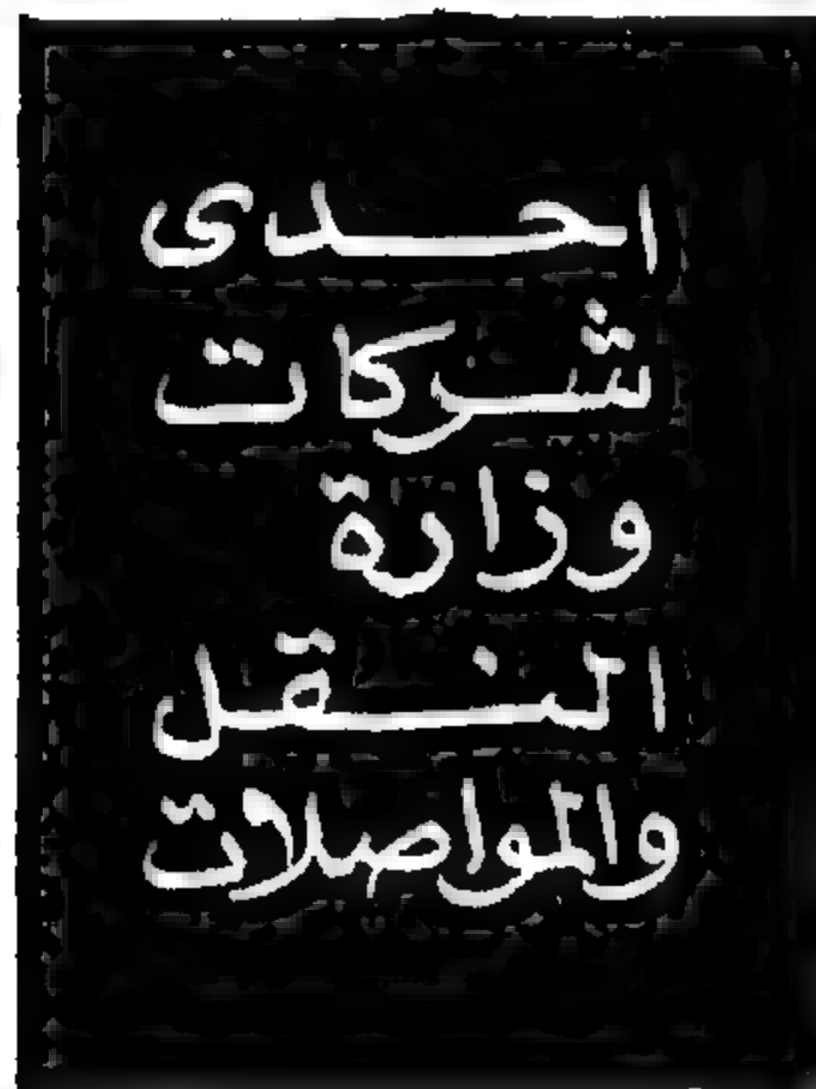 احدى
شركات
وزارة
النقل
والمواصلات